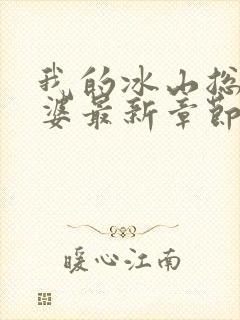 我的冰山总
婆最新章节
暖心江南